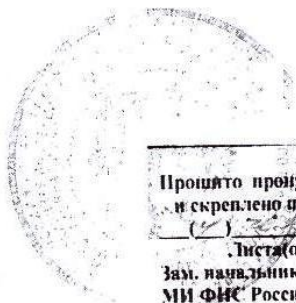 Прошито прону
и скреплено п
Листа(о
Зам. начальник
МИ ФНС Росси